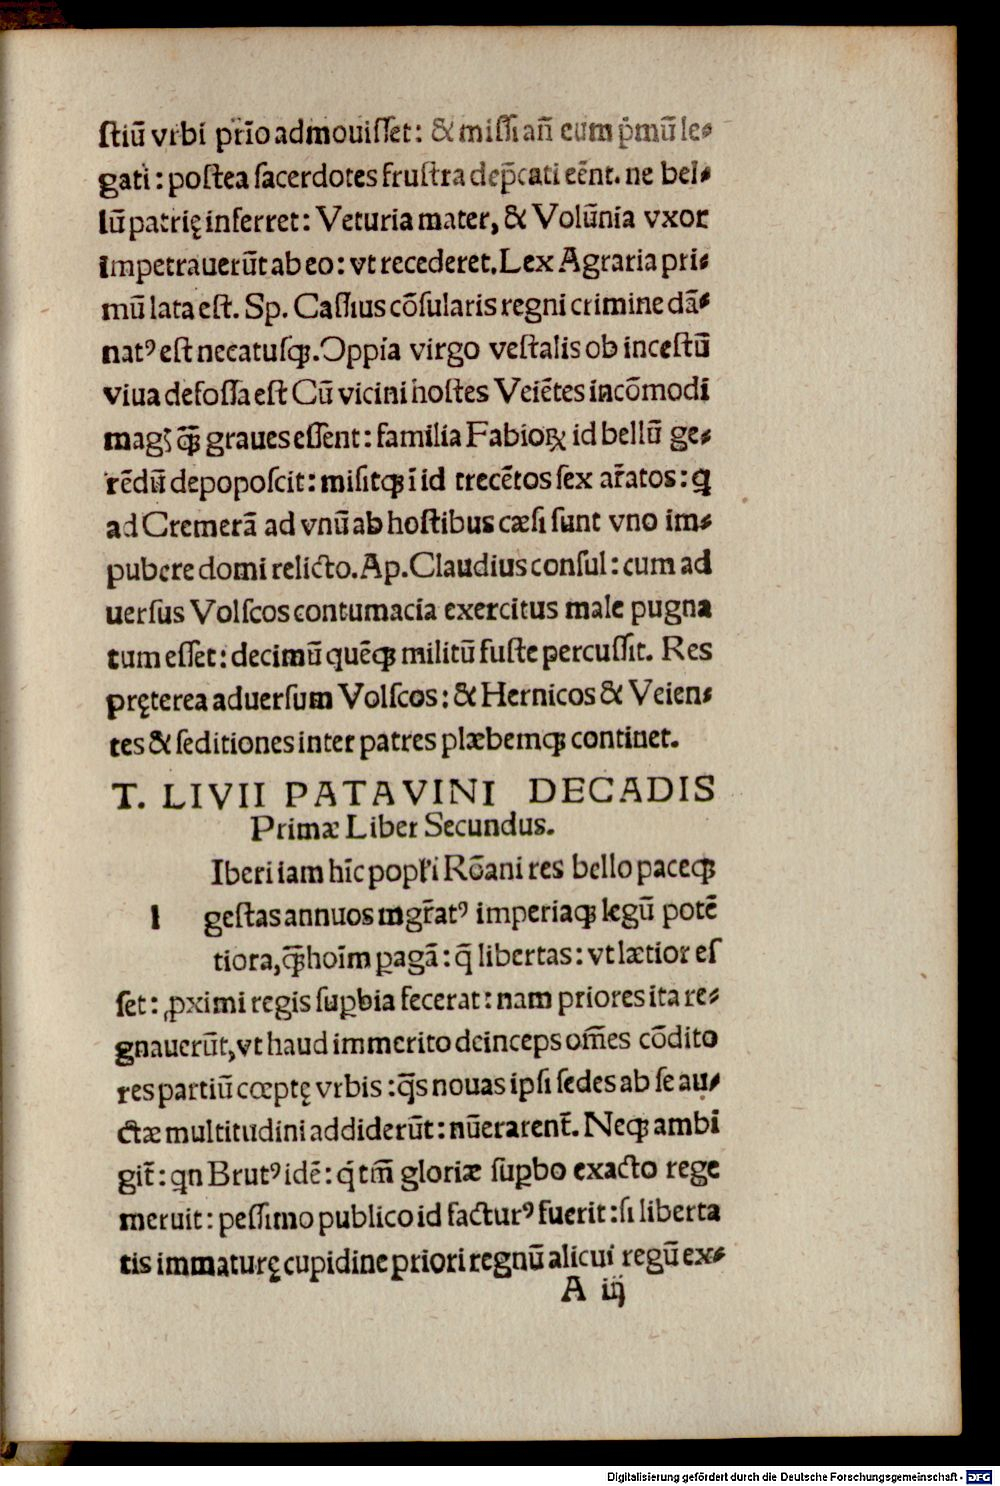 ſtiū vrbi pr̄io admouiſſet: & miſſi an̄ eum p̄mū le⸗
gati: poſtea ſacerdotes fruſtra dep̄cati eēnt. ne bel⸗
lū patrię inferret: Veturia mater, & Volūnia vxor
impetrauerūt ab eo: vt recederet. Lex Agraria pri⸗
mū lata eſt. Sp. Caſſius cōſularis regni crimine dā⸗
natꝰ eſt necatuſqꝫ. Oppia virgo veſtalis ob inceſtū
viua defoſſa eſt Cū vicini hoſtes Veiētes incōmodi
magꝭ qꝫ̄ graues eſſent: familia Fabioꝝ id bellū ge⸗
rēdū depopoſcit: miſitqꝫ ī id trecētos ſex ar̄atos: q
ad Cremerā ad vnū ab hoſtibus cæſi ſunt vno im⸗
pubere domi relicto. Ap. Claudius conſul: cum ad
uerſus Volſcos contumacia exercitus male pugna
tum eſſet: decimū quēqꝫ militū fuſte percuſſit. Res
pręterea aduerſum Volſcos: & Hernicos & Veien⸗
tes & ſeditiones inter patres plæbemqꝫ continet.
T. LIVII PATAVINI DECADIS
Primæ Liber Secundus.
Iberi iam hīc popl̓i Rōani res bello paceqꝫ
l geſtas annuos mgr̄atꝰ imperiaqꝫ legū potē
tiora, qꝫ̄ hoīm ꝑagā: q̄ libertas: vt lætior eſ
ſet: ꝓximi regis ſuꝑbia fecerat: nam priores ita re⸗
gnauerūt, vt haud immerito deinceps om̄es cōdito
res partiū cœptę vrbis: q̄s nouas ipſi ſedes ab ſe au⸗
ctæ multitudini addiderūt: nūerarent̄. Neqꝫ ambi
git̄: qn Brutꝰ idē: q̇ tm̄ gloriæ ſuꝑbo exacto rege
meruit: peſſimo publico id facturꝰ fuerit: ſi liberta
tis immaturę cupidine priori regnū alicui regū ex⸗
A iij
Digitalisierung gefördert durch die Deutsche Forschungsgemeinschaft - DFG